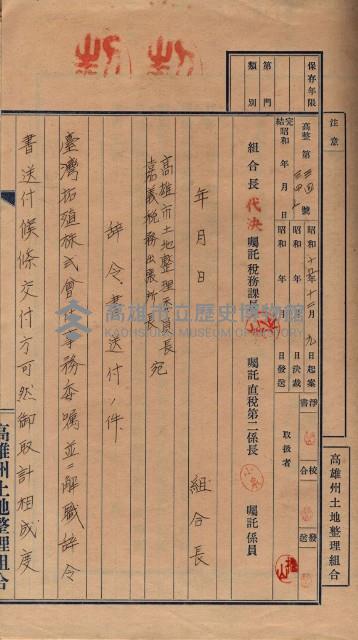 注意
高雄州土地整理組合
保存年限
第 門
類別
高整第 號
昭和 年 月 九日起案
昭和 年 月 日決裁
昭和 年 月 日發送
完結 昭和 年 月 日
淨書
校合
發送
取扱者
組合長 代決 囑託稅務課長 囑託直稅第二係長 囑託係員
年 月 日
組合長
高雄市土地整理委員長 宛
嘉義稅務出張所長
辞令書送付ノ件
臺灣拓殖株式會社事務委囑並ニ解職辞令
書送付候條交付方可然御取計相成度
高雄州土地整理組合
高雄市立歷史博物館
KAOHSIUNG MUSEUM OF HISTORY